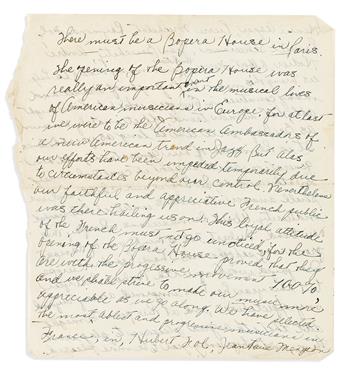 There must be a Bopera House in Paris
The opening of the Bopera House was
really an important event in the musical lives
of American musicians in Europe. for at last
we were to be the American Ambassadors of
a new American trend in Jazz. But alas,
our efforts have been impeded temporarily due
to circumstances beyond our control. Nevertheless
our faithful and appreciative French public
was there hailing us on. This loyal attitude
of the French must not go unnoticed, for the
opening of the Bopera House proved that they
are with the progressive movement 
and we shall strive to make our music more
appreciable as we go along. We have selected
the most ablest and progressive musicians in
France, in, Hubert